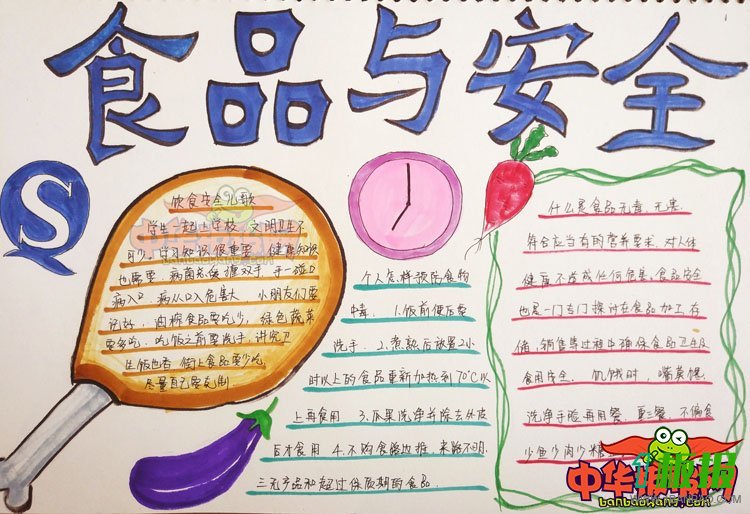 食品与安全
饮食安全儿歌
学生一起上学校 文明卫生不
可少。学习知识很重要 健康知识
也需要。病菌总缠握双手 开一碰口
病入口 病从口入危害大 小朋友们要
记好。油榨食品要吃少。绿色蔬菜
要多吃。吃饭之前要洗手。讲究卫
生饭也香 街上食品要少吃
尽量自己要克制
个人怎样预防食物
中毒。1.饭前便后要
洗手。2.煮熟后放置2小
时以上的食品重新加热到70℃以
上再食用 3.瓜果洗净并除去外皮
后才食用 4.不购食路边摊。来路不明。
三无产品和超过保质期的食品。
什么是食品无毒。无害。
符合应当有的营养要求 对人体
健康不造成任何危害。食品安全
也是一门专门探讨在食品加工。存
储。销售等过程中确保食品卫生及
食用安全。饥饿时，嘴莫馋。
洗净手脸再用餐 重三餐 不偏食
少鱼少肉少糖
S
中华
报网
banbaowang.com